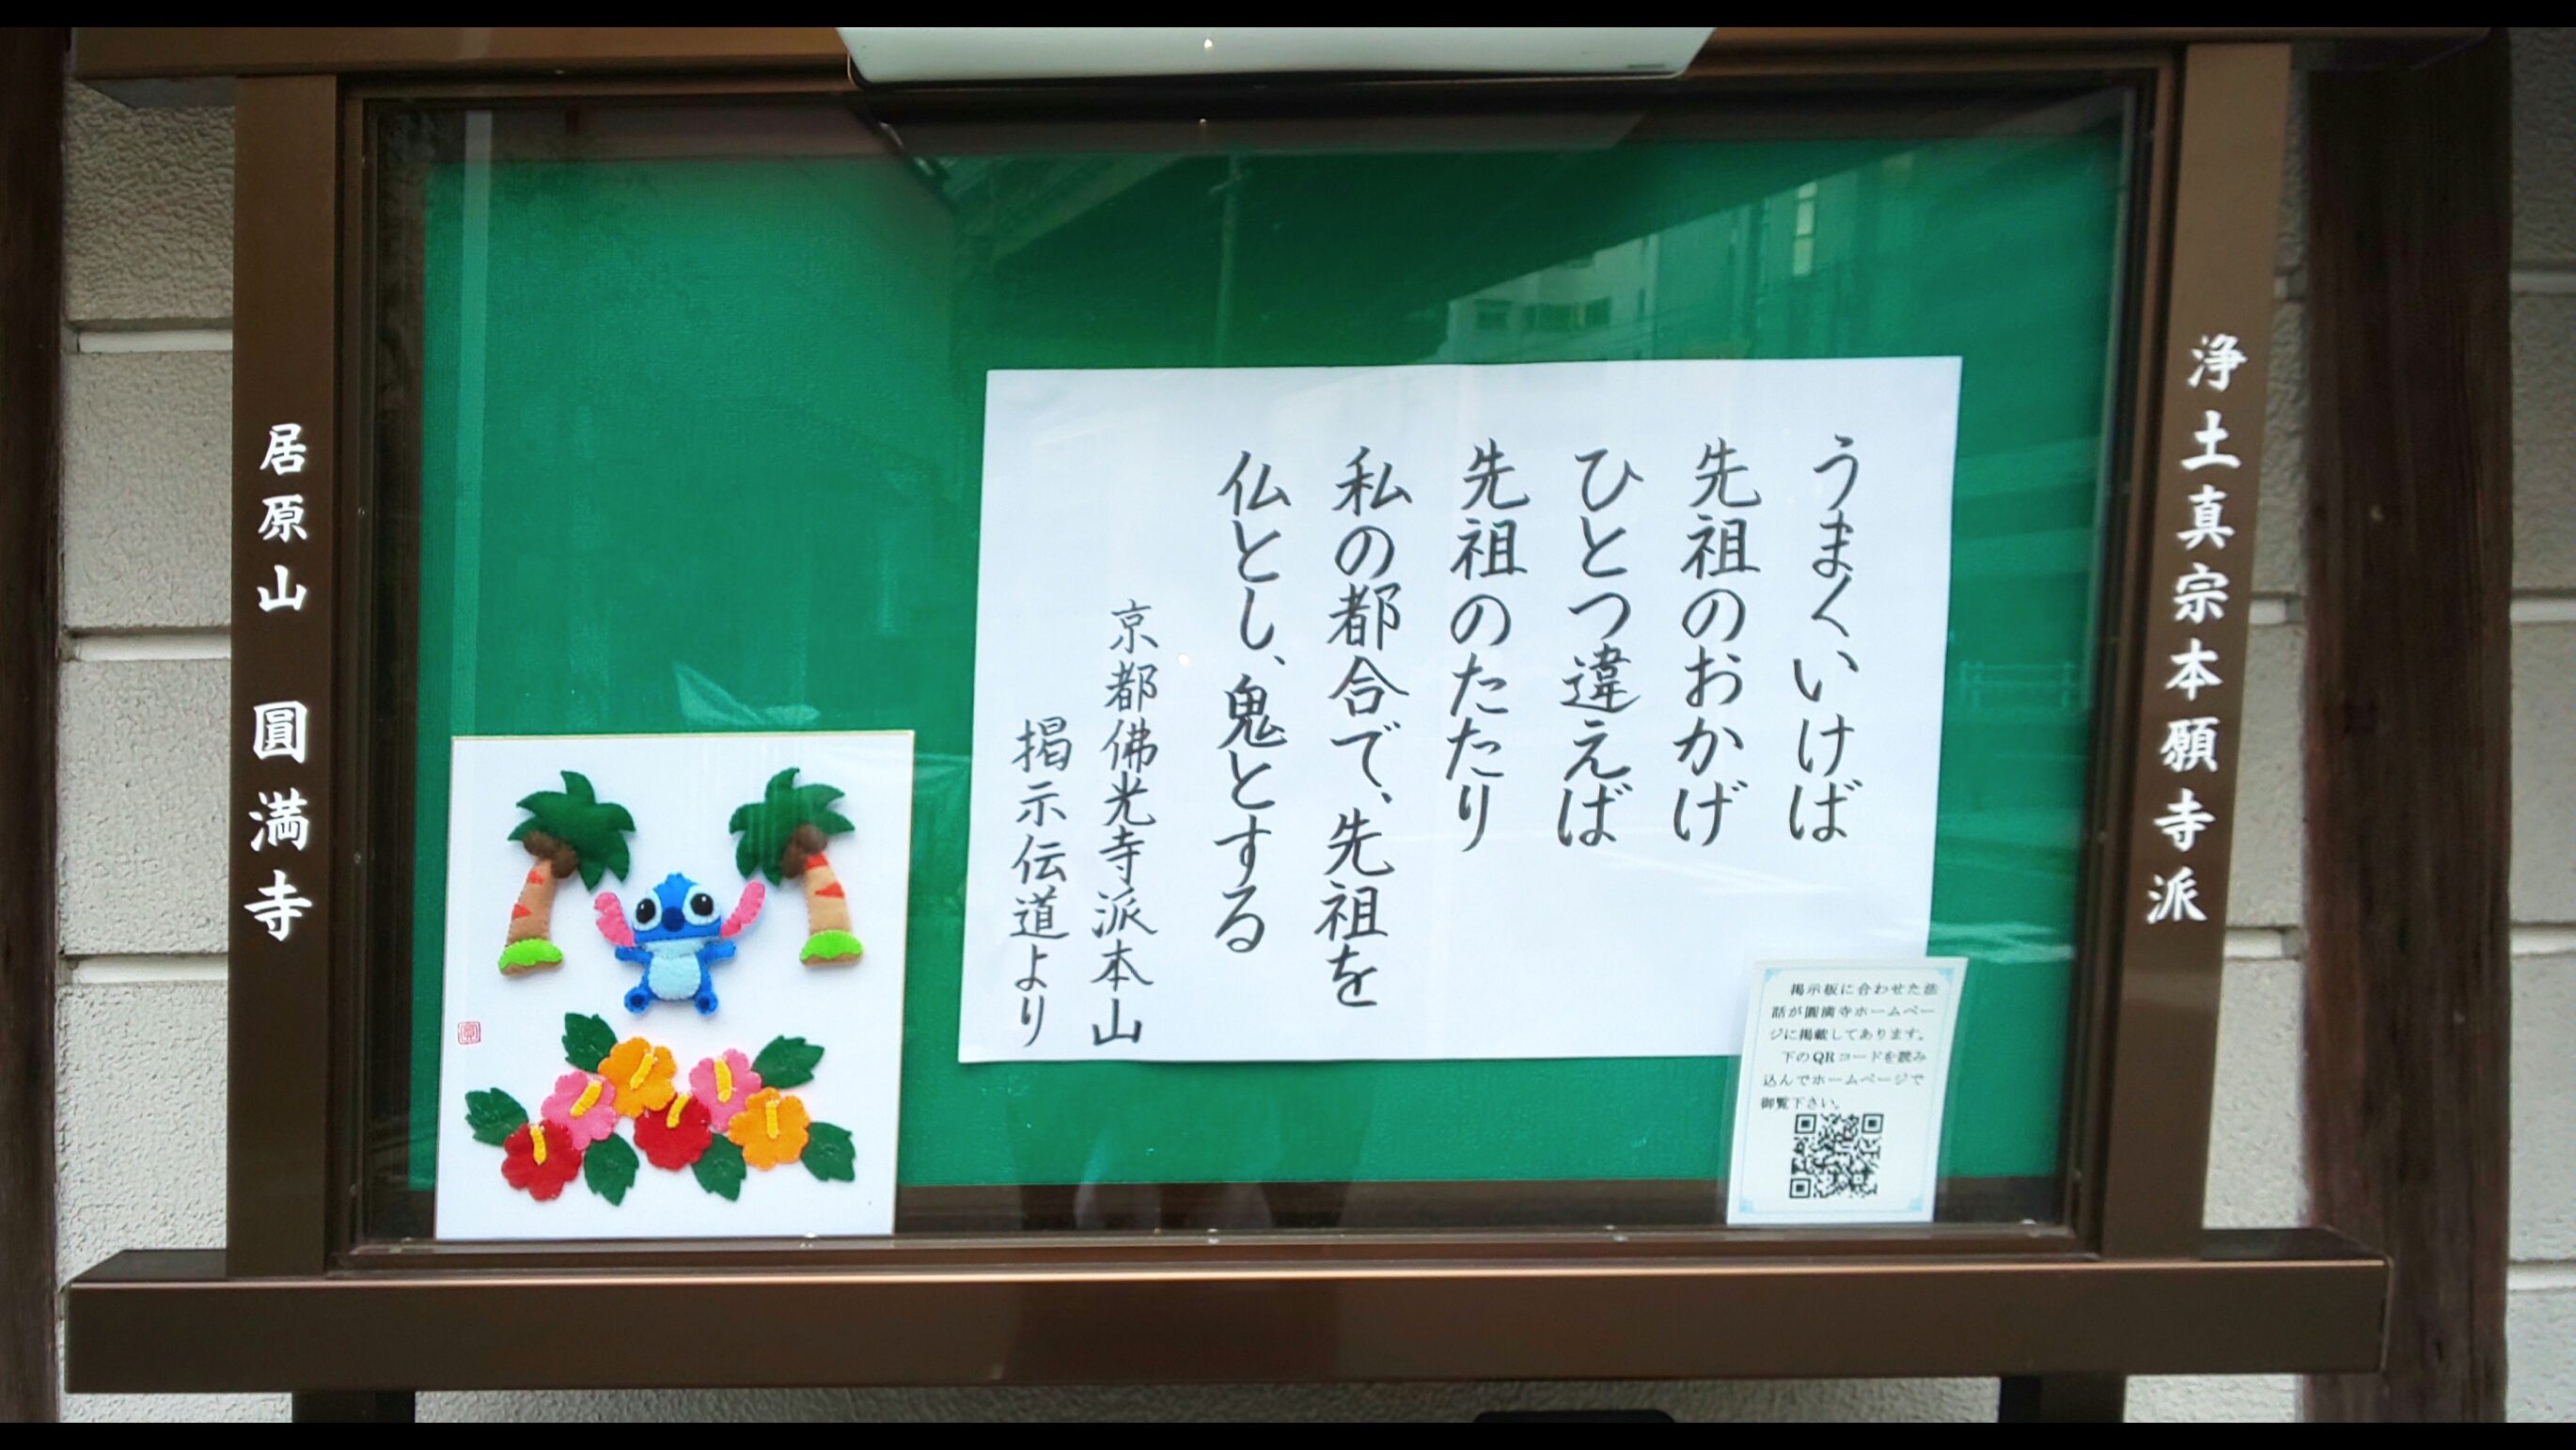 浄土真宗本願寺派
うまくいけば
先祖のおかげ
ひとつ違えば
先祖のたたり
私の都合で、先祖を
仏とし、鬼とする
京都佛光寺派本山
掲示伝道より
掲示板に合わせた法
話が圓満寺ホームペー
ジに掲載してあります。
下のQRコードを読み
込んでホームページで
御覧下さい。
居原山 圓満寺